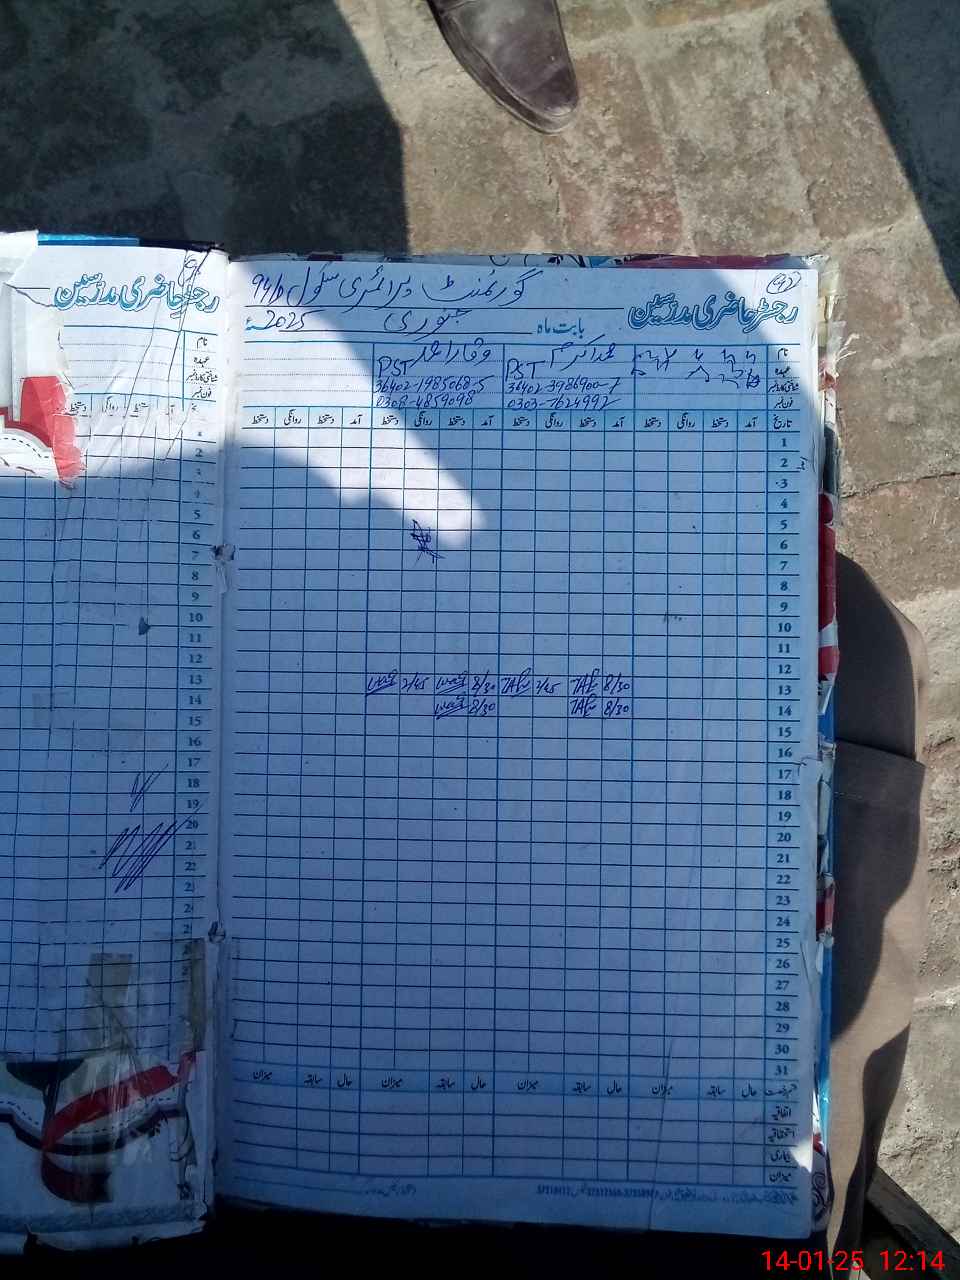 رجسٹر حاضری مدرسین
گورنمنٹ پرائمری سکول 94/D
رجسٹر حاضری مدرسین
بابت ماہ جنوری 2025ء
نام محمد اکرم وقار احمد
عہدہ PST PST
شناختی کارڈ نمبر 36402-3986900-7 36402-1985068-5
فون نمبر 0303-7624992 0308-4859098
تاریخ آمد دستخط روانگی دستخط آمد دستخط روانگی دستخط آمد دستخط روانگی دستخط آمد دستخط روانگی دستخط
1
2
3
4
5
6
7
8
9
10
11
12
13 8/30 2/45 8/30 2/45
14 8/30 8/30
15
16
17
18
19
20
21
22
23
24
25
26
27
28
29
30
31
حال سابقہ میزان حال سابقہ میزان حال سابقہ میزان حال سابقہ میزان
اتفاقیہ
استحقاقیہ
بیماری
میزان
نام
عہدہ
شناختی کارڈ نمبر
فون نمبر
آمد دستخط روانگی دستخط
2
3
4
5
6
7
8
9
10
11
12
13
14
15
16
17
18
19
20
21
22
14-01-25 12:14